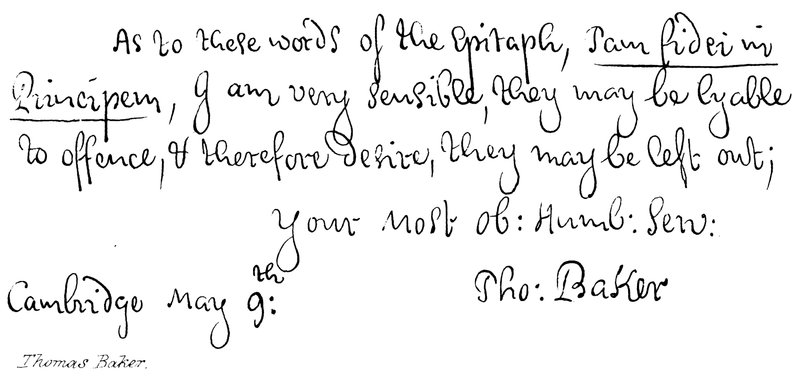 As to these words of the Epitaph, Tam fidei in
Principem, I am very sensible, they may be lyable
to offence, & therefore desire, they may be left out;
Your most ob: Humb: Serv:
Tho: Baker
Cambridge May 9th:
Thomas Baker.